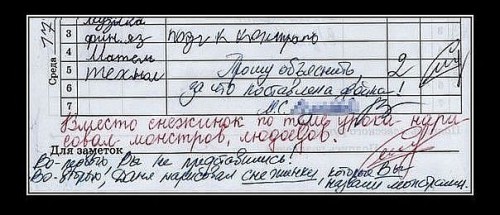 Среда
музыка
3 фин. яз подг к контроло
4 Матем
5 технол Прошу объяснить, 2
6 за что поставлена двойка!
7 М.С.
Вместо снежинок по теме урока нари
совал монстров, людоедов.
Для заметок
Во-первых Вы не представились!
Во-вторых, Даня нарисовал снежинки, которые Вы
назвали монстрами.